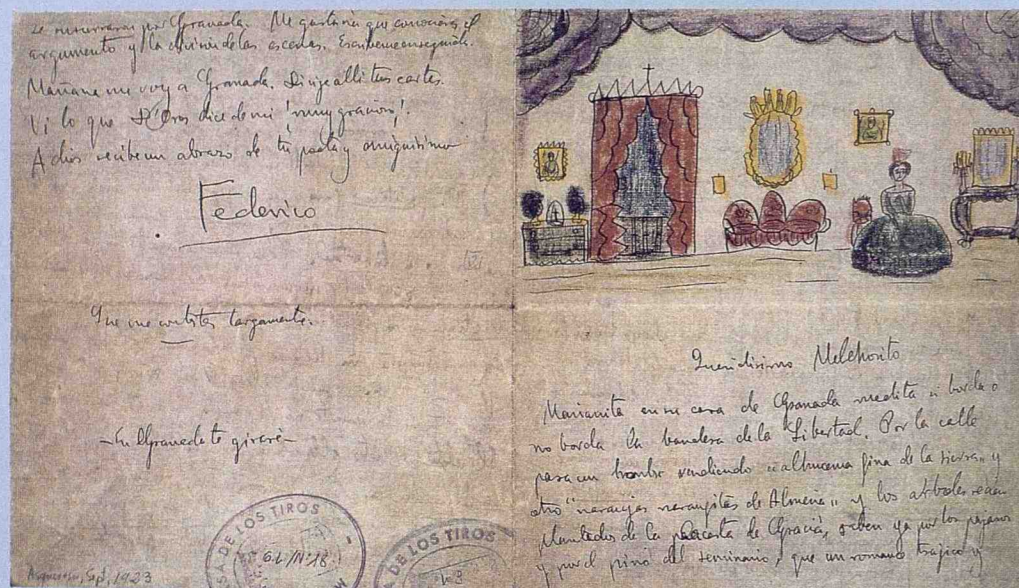 se murmuraran por Granada. Me gustaria que conocieras el
argumento y la division de las escenas. Escribeme enseguida.
Mañana me voy a Granada. Dirije alli tus cartas.
Vi lo que D'Ors dice de mi ¡muy gracioso!
Adios recibe un abrazo de tu poeta y amiguisimo
Federico
Que me contestes largamente.
—En Granada te giraré—
CASA DE LOS TIROS
Sept, 1923
DE LOS TIROS
Queridisimo Melchorito
Marianita en su casa de Granada medita si borda o
no borda la bandera de la Libertad. Por la calle
pasa un hombre vendiendo "alhucema fina de la sierra" y
otro "naranjas naranjitas de Almeria" y los arboles recien
plantados de la placeta de Gracia, saben ya por los pajaros
y por el pino del seminario, que un romance trajico y